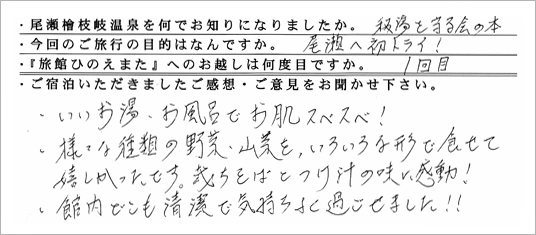 ・尾瀬檜枝岐温泉を何でお知りになりましたか。 秘湯を守る会の本
・今回のご旅行の目的はなんですか。 尾瀬へ初トライ!
・『旅館ひのえまた』へのお越しは何度目ですか。 1回目
・ご宿泊いただきましたご感想・ご意見をお聞かせ下さい。
・いいお湯・お風呂でお肌スベスベ!
・様々な種類の野菜・山菜を、いろいろな形で食せて
嬉しかったです。裁ちそばとつけ汁の味に感動!
・館内どこも清潔で気持ちよく過ごせました!!